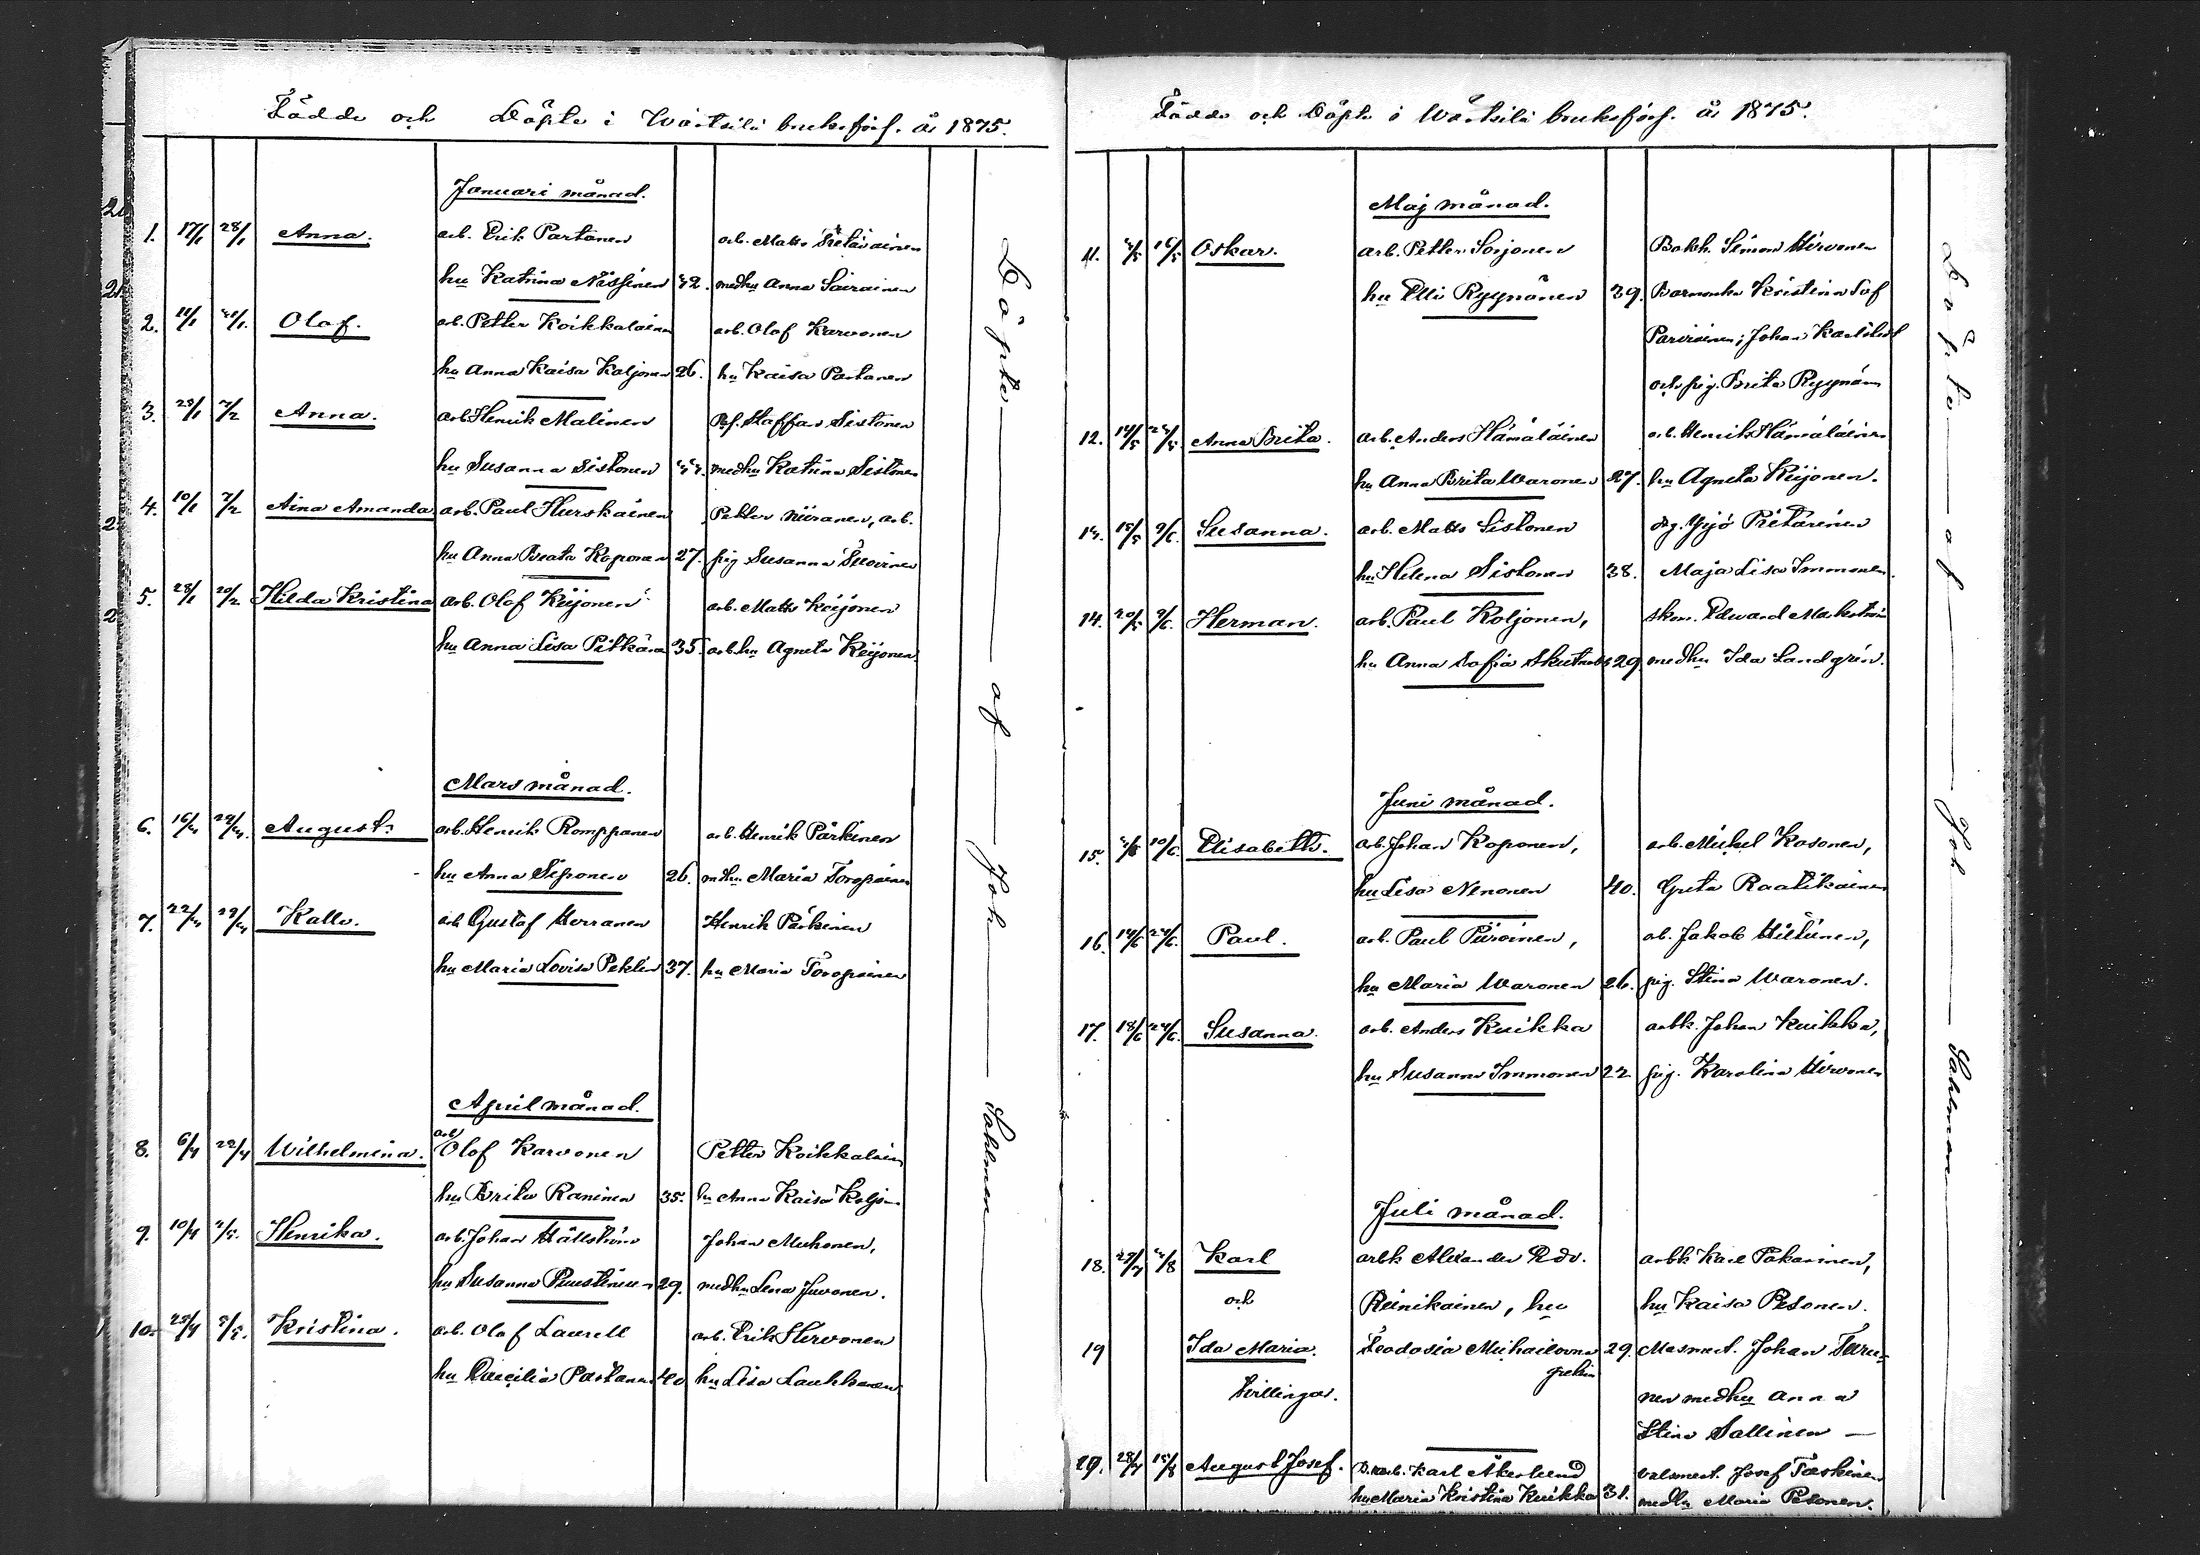 Födde och Döpte i Wärtsilä bruksförs. år 1875.
Januari månad.
1. 17/1 28/1 Anna. arb. Erik Partanen arb. Matts
hu Katrina Nissinen 42. med hu Anna Sairainen
2. Olof. arb. Petter Koikkalainen arb. Olof Karvonen
hu Anna Kaisa Koljonen 26. hu Kaisa Partanen
3. 28/1 7/2 Anna. arb. Henrik Malinen Staffan Sistonen
hu Susanna Sistonen med hu Katrina Sistonen
4. 10/1 7/2 Aina Amanda arb. Paul Hurskainen Petter Niiranen, arb.
hu Anna Beata Koponen 27. pig Susanna
5. 28/1 20/2 Hilda Kristina arb. Olof Keijonen arb. Matts Keijonen
hu Anna Lisa Pitkänen 35. arb. hu Agneta Keijonen
Mars månad.
6. August. arb. Henrik Romppanen arb. Henrik Pärkinen
hu Anna Siponen 26. m hu Maria Toropainen
7. Kalle. arb Gustaf Horranen Henrik Pärkinen
hu Maria Lovisa 37. hu Maria Toropainen
April månad.
8. 6/4 22/4 Wilhelmina. arb Olof Karvonen Petter Koikkalain
hu Brita Raninen 35. hu Anna Kaisa Koljon
9. 10/4 Henrika. arb. Johan Hällström Johan Muhonen,
hu Susanna Puustinen 29. med hu Lena Juvonen.
10. 25/4 Kristina. arb. Olof Laurell arb. Erik Hirvonen
hu Cæcilia Partanen 40 hu Lisa Laukkanen
Döpte af Joh Sahlman
Födde och Döpte i Wärtsilä bruksförs. år 1875.
Maj månad.
11. 16/5 Oskar. arb. Petter Sorjonen Bokh. Simon Hirvonen
hu Elli Ryynänen 39. Barnmorska Kristina Sof
Parviainen; Johan Karlstedt
och pig. Brita Ryynän
12. 14/5 Anna Brita. arb. Anders Hämäläinen arb. Henrik Hämäläinen
hu Anna Brita Waronen 27. hu Agneta Keijonen.
15/5 9/6 Susanna. arb. Matts Sistonen drg. Yrjö Pietarinen
hu Helena Sistonen 38. Maja Lisa Immonen.
14. 20/5 9/6. Herman. arb. Paul Koljonen, Edward
hu Anna Sofia Skutnabb 29 med hu Ida Landgrén.
Juni månad.
15. 10/6. Elisabeth. arb. Johan Koponen, arb. Mickel Kosonen,
hu Lisa Nenonen 40. Greta Raatikainen
16. 14/6 24/6. Paul. arb. Paul Piiroinen, ab. Jakob Hiltunen,
hu Maria Waronen 26. pig. Stina Waronen.
17. 18/6 24/6. Susanna. arb. Anders Kuikka arbk. Johan Kuikka,
hu Susanna Immonen 22 pig. Karolina Hirvonen
Juli månad.
18. Karl arbk Alexander Edv. arbk Karl Pakarinen,
och Reinikainen, hu hu Kaisa Pesonen.
19 Ida Maria. Feodosia Michailovna 29. Masmest. Johan Turu-
tvillingar. nen med hu Anna
Stina Sallinen —
28/7 15/8 August Josef. Karl Åkerlund valsmest. Josef Taskinen
hu Maria Kristina Kuikka 31. med hu Maria Pesonen.
Döpte af Joh Sahlman